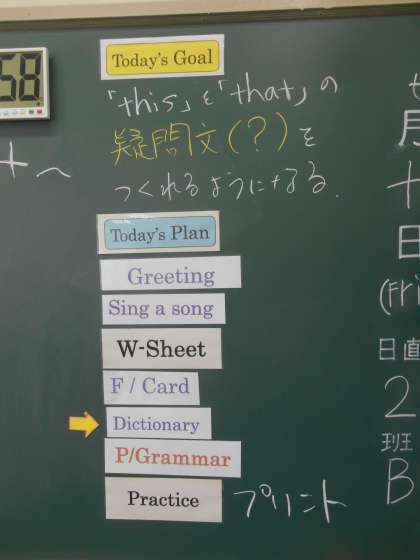 58
Today's Goal
「this」と「that」の
疑問文(?)を
つくれるようになる.
Today's Plan
Greeting
Sing a song
W-Sheet
F / Card
Dictionary
P/Grammar
Practice プリント
月
十
日
(Fri
日直
2
班
B